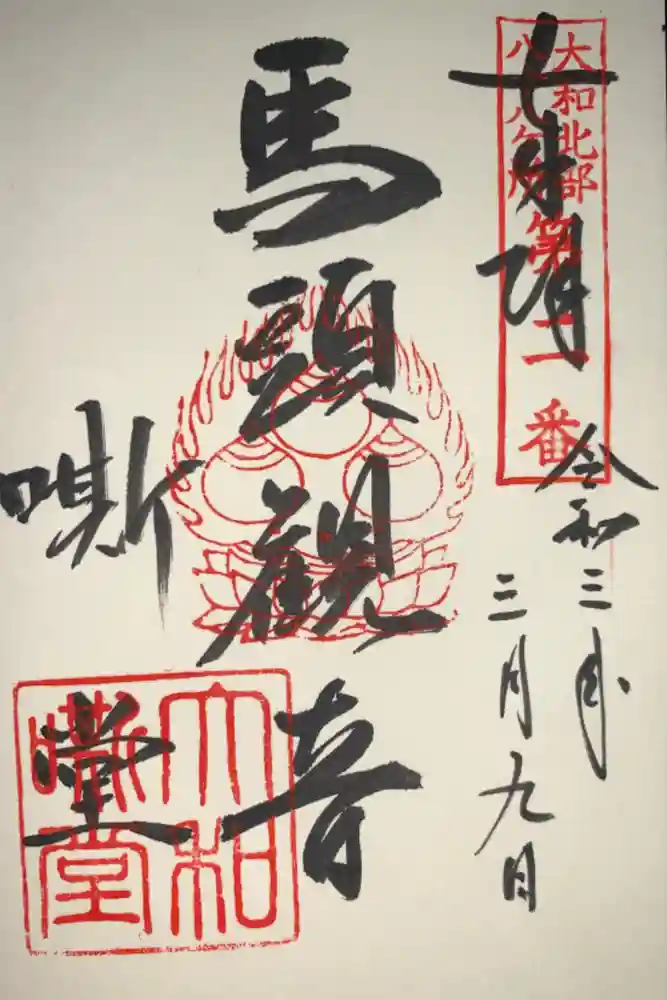 大和北部
八十八ヶ所
第二番
令和三年
三月九日
馬頭觀音
嘶堂
大和
嘶堂